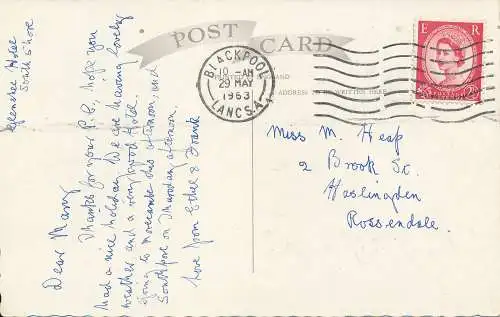 POST CARD
ADDRESS TO BE WRITTEN HERE
BLACKPOOL
10 - AM
29 MAY
1963
LANCS. A
E R
Glenshee Hotel
South Shore
Dear Mary
Thanks for your P.C, hope you
had a nice holiday. We are having lovely
weather and a very good Hotel.
Going to Morecambe this afternoon, and
Southport on Thursday afternoon.
Love from Ethel & Frank
Miss M. Heap
2 Brook St.
Haslingden
Rossendale.